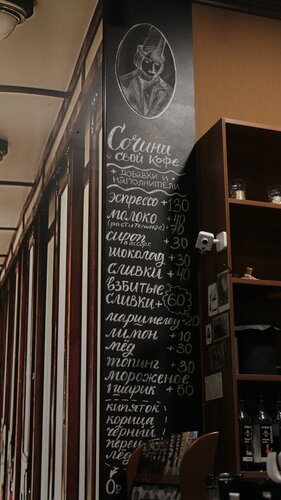 Сочини
свой кофе
+ добавки и
наполнители
эспрессо +130
молоко +40
(растительное) +70
сироп +30
в ассорт.
шоколад +30
сливки +40
взбитые
сливки + 60
маршмеллоу +20
лимон +10
мёд +30
топинг +30
мороженое
1 шарик +60
кипяток
корица
чёрный
перец
лёд